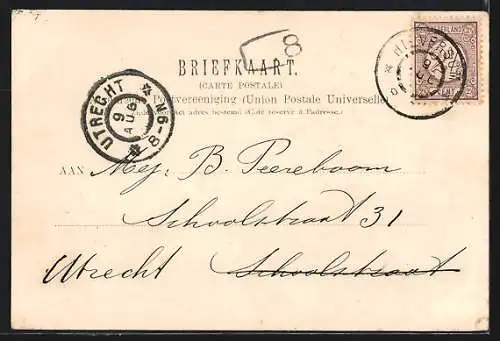 8
BRIEFKAART.
(CARTE POSTALE)
Postvereeniging (Union Postale Universelle)
adres bestemd (Côté réservé à l'adresse.)
UTRECHT
9
AUG
8-9 N
HILVERSUM
NEDERLAND
AAN Mej: B. Peereboom
Schoolstraat 31
Utrecht Schoolstraat